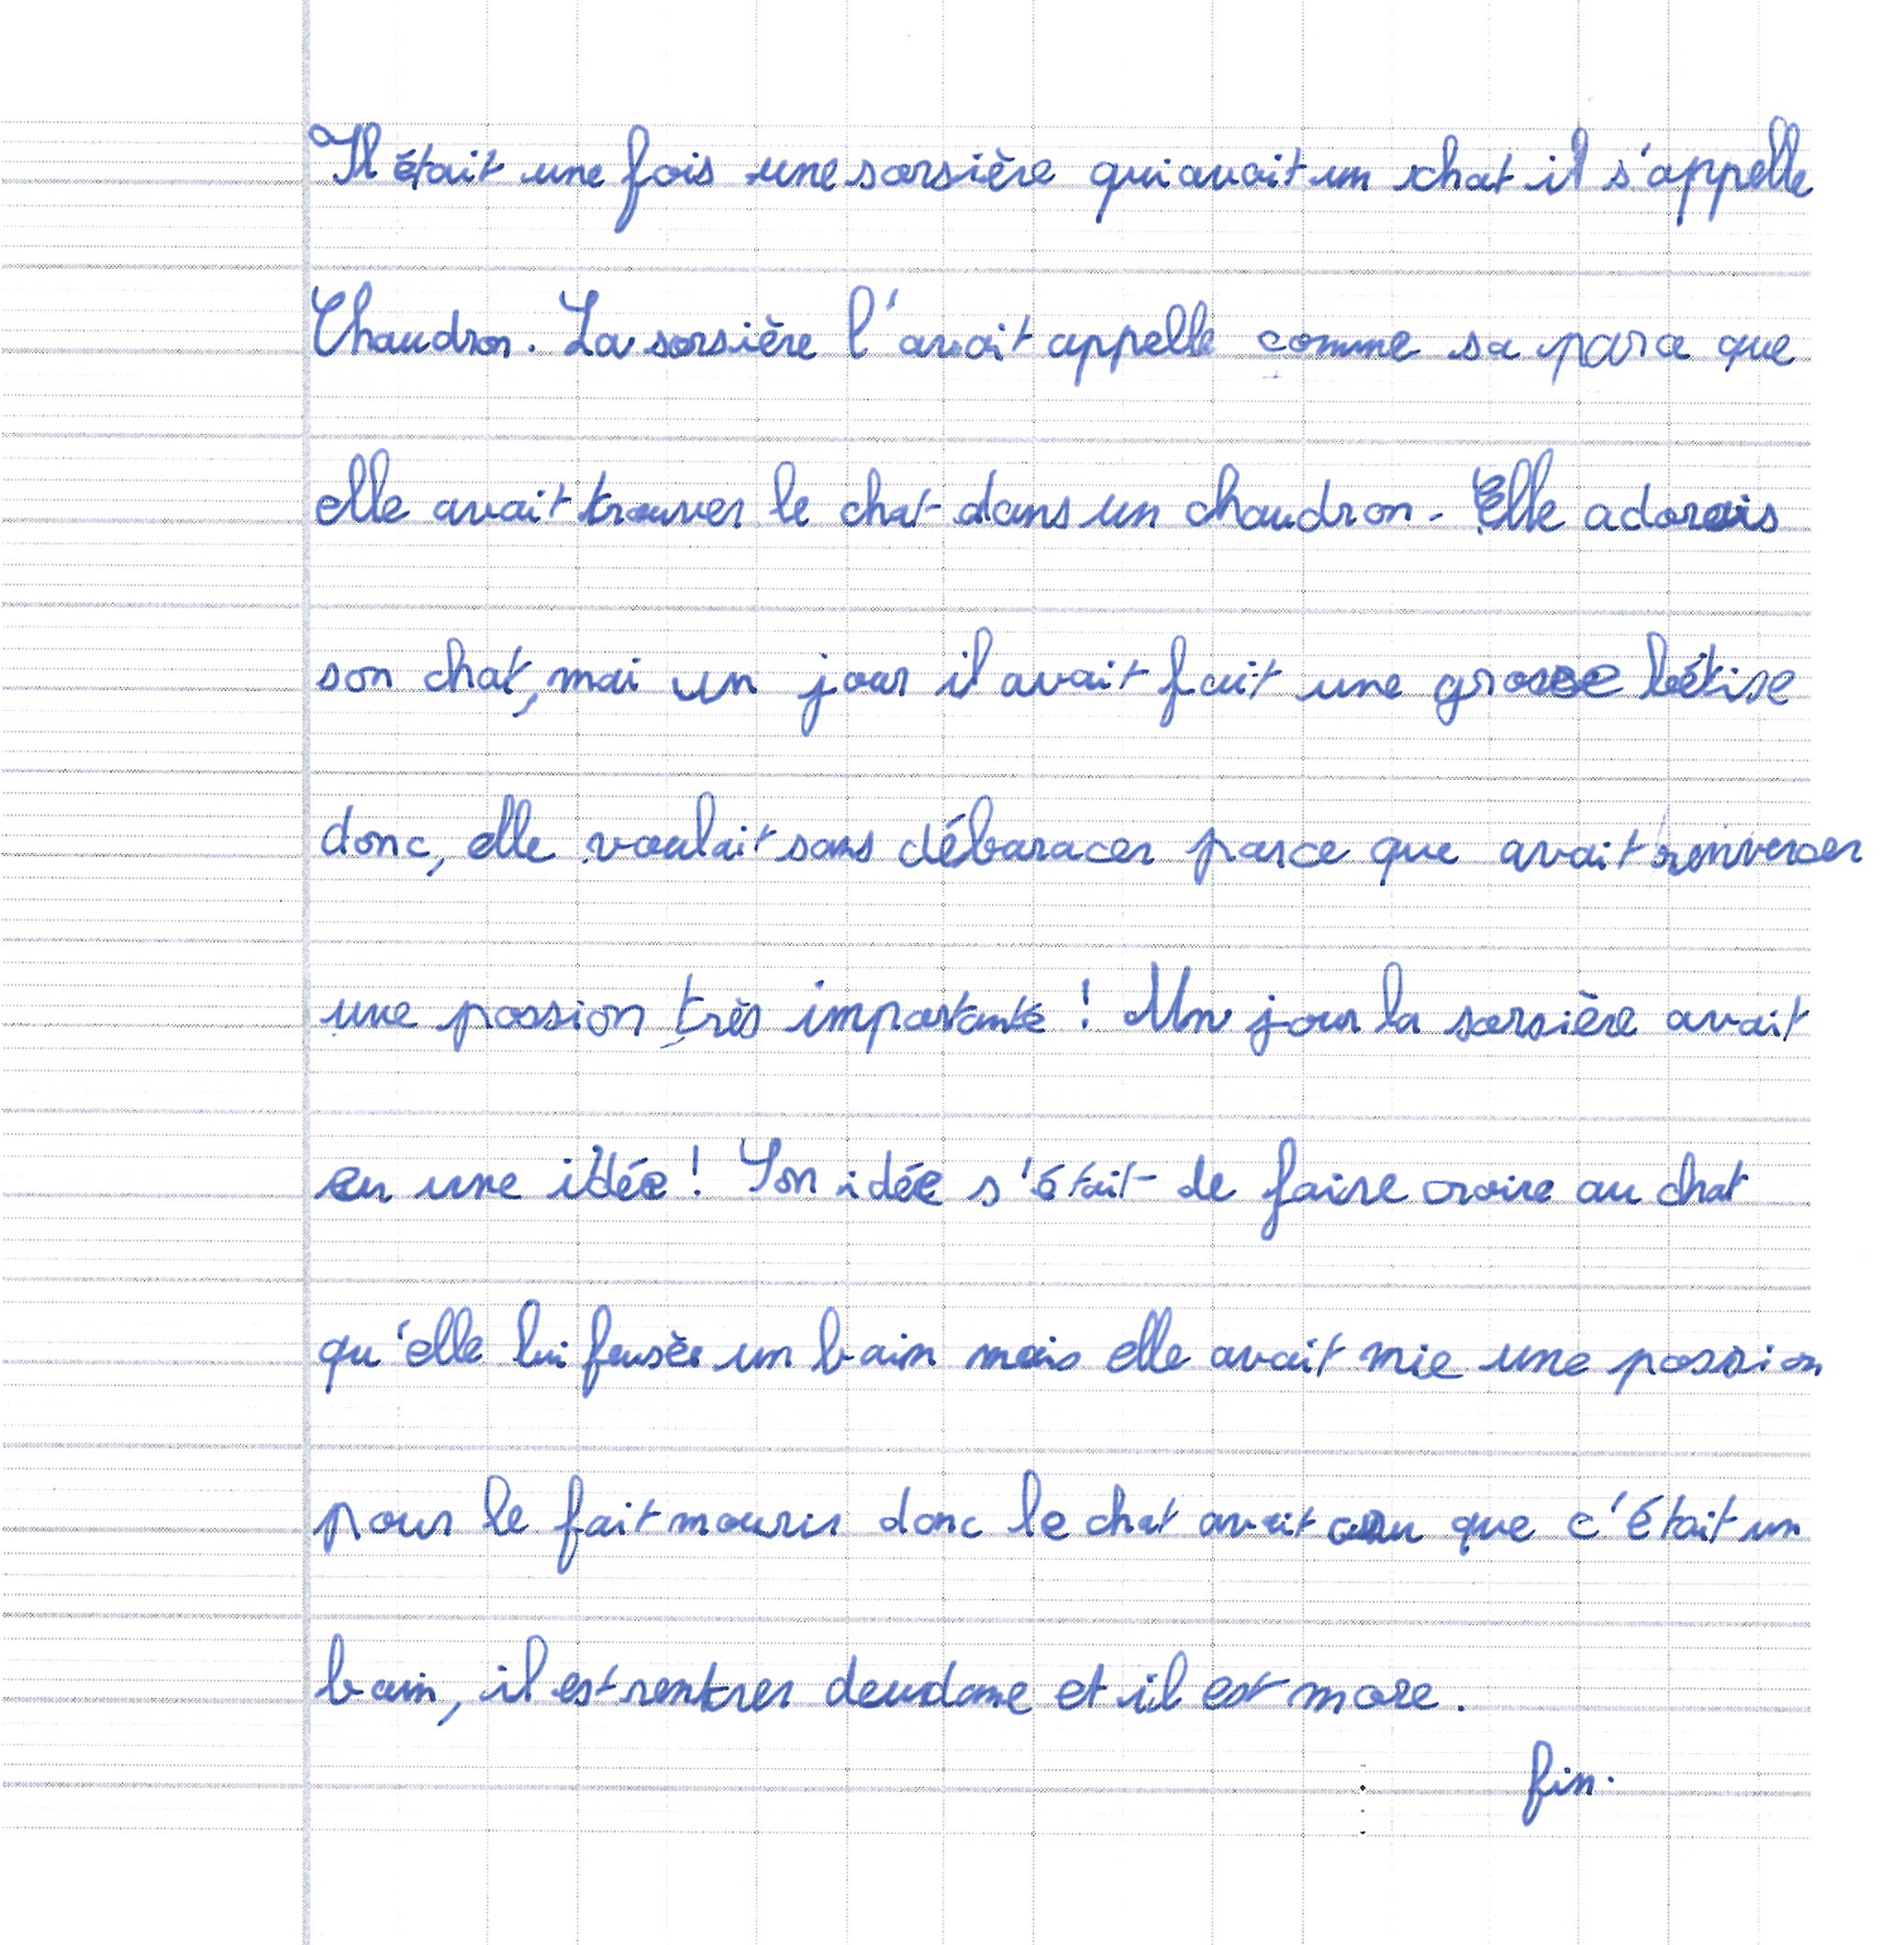 Il était une fois une sorsière qui avait un chat il s'appelle
Chaudron. La sorsière l'avait appelle comme sa parce que
elle avait trouver le chat dans un chaudron. Elle adorais
son chat, mai un jour il avait fait une grosse bétise
donc, elle voulait sans débaracer parce que avait renverser
une possion très importante ! Un jour la sorsière avait
eu une idée ! Son idée s'était de faire croire au chat
qu'elle lui fesèe un bain mais elle avait mie une possion
pour le fait mourir donc le chat avait cru que c'était un
bain, il est rentrer deudane et il est more.
fin.